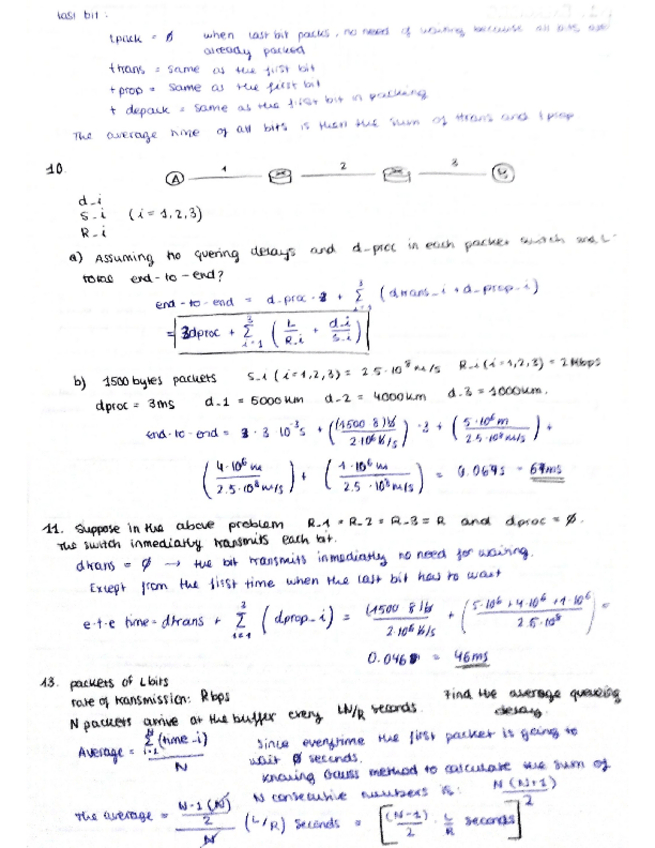 last bit :
tpack = ∅ when last bit packs, no need of waiting because all bits are
already packed
ttrans = same as the first bit
tprop = same as the first bit
t depack = same as the first bit in packing
The average time of all bits is then the sum of ttrans and tprop
10.
A 1 2 3 B
d_i
S_i (i = 1,2,3)
R_i
a) Assuming no quering delays and d-proc in each packet switch and L
total end-to-end?
end-to-end = d-proc · 3 + Σ i=1 3 (dtrans_i + d-prop-i)
= 3dproc + Σ i=1 3 (L/R_i + d_i/S_i)
b) 1500 bytes packets S_i (i=1,2,3) = 2.5·10⁸ m/s R_i (i=1,2,3) = 2 Mbps
dproc = 3ms d_1 = 5000 km d_2 = 4000km d_3 = 1000km.
end-to-end = 3 · 3 10⁻³s + ((1500 8)b / 2·10⁶ b/s) · 3 + (5·10⁶ m / 2.5·10⁸ m/s) +
(4·10⁶ m / 2.5·10⁸ m/s) + (1·10⁶ m / 2.5·10⁸ m/s) = 0.067s = 67ms
11. Suppose in the above problem R_1 = R_2 = R_3 = R and dproc = ∅.
The switch inmediatly transmits each bit.
dtrans = ∅ → the bit transmits inmediatly no need for waiting.
Except from the first time when the last bit has to wait
e·t·e time = dtrans + Σ i=1 3 (dprop_i) = (1500 8)b / 2·10⁶ b/s + (5·10⁶ + 4·10⁶ + 1·10⁶ / 2.5·10⁸) =
0.046 = 46ms
13. packets of L bits
rate of transmission: R bps Find the average queuing
N packets arrive at the buffer every LN/R seconds. delay.
Average = Σ i=1 N (time_i) / N Since everytime the first packet is going to
wait ∅ seconds.
knowing Gauss method to calculate the sum of
N consecutive numbers is: N(N+1)/2
The average = N-1(N)/2 / N (L/R) seconds = [(N-1)/2 · L/R seconds]